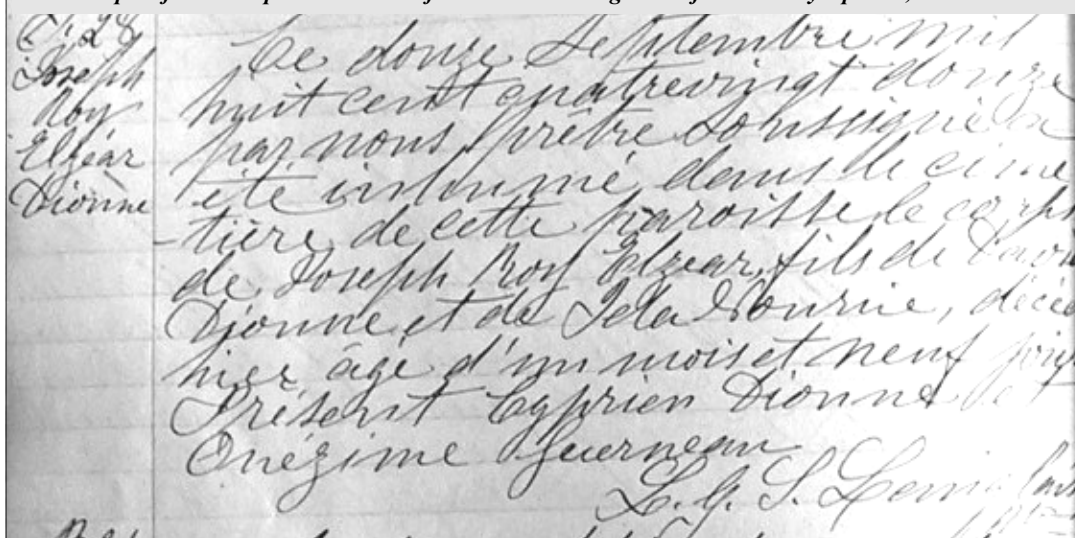 Joseph
Roy
Elzéar
Dionne
Ce douze Septembre mil
huit cent quatrevingt douze
par nous prêtre soussigné a
été inhumé dans le cime
-tière de cette paroisse le corps
de Joseph Roy Elzear, fils de
Dionne et de Nourrie,
hier âgé d'un mois et neuf jours
Présent Cyprien Dionne et
Onégime Guerneau
L. G. S.